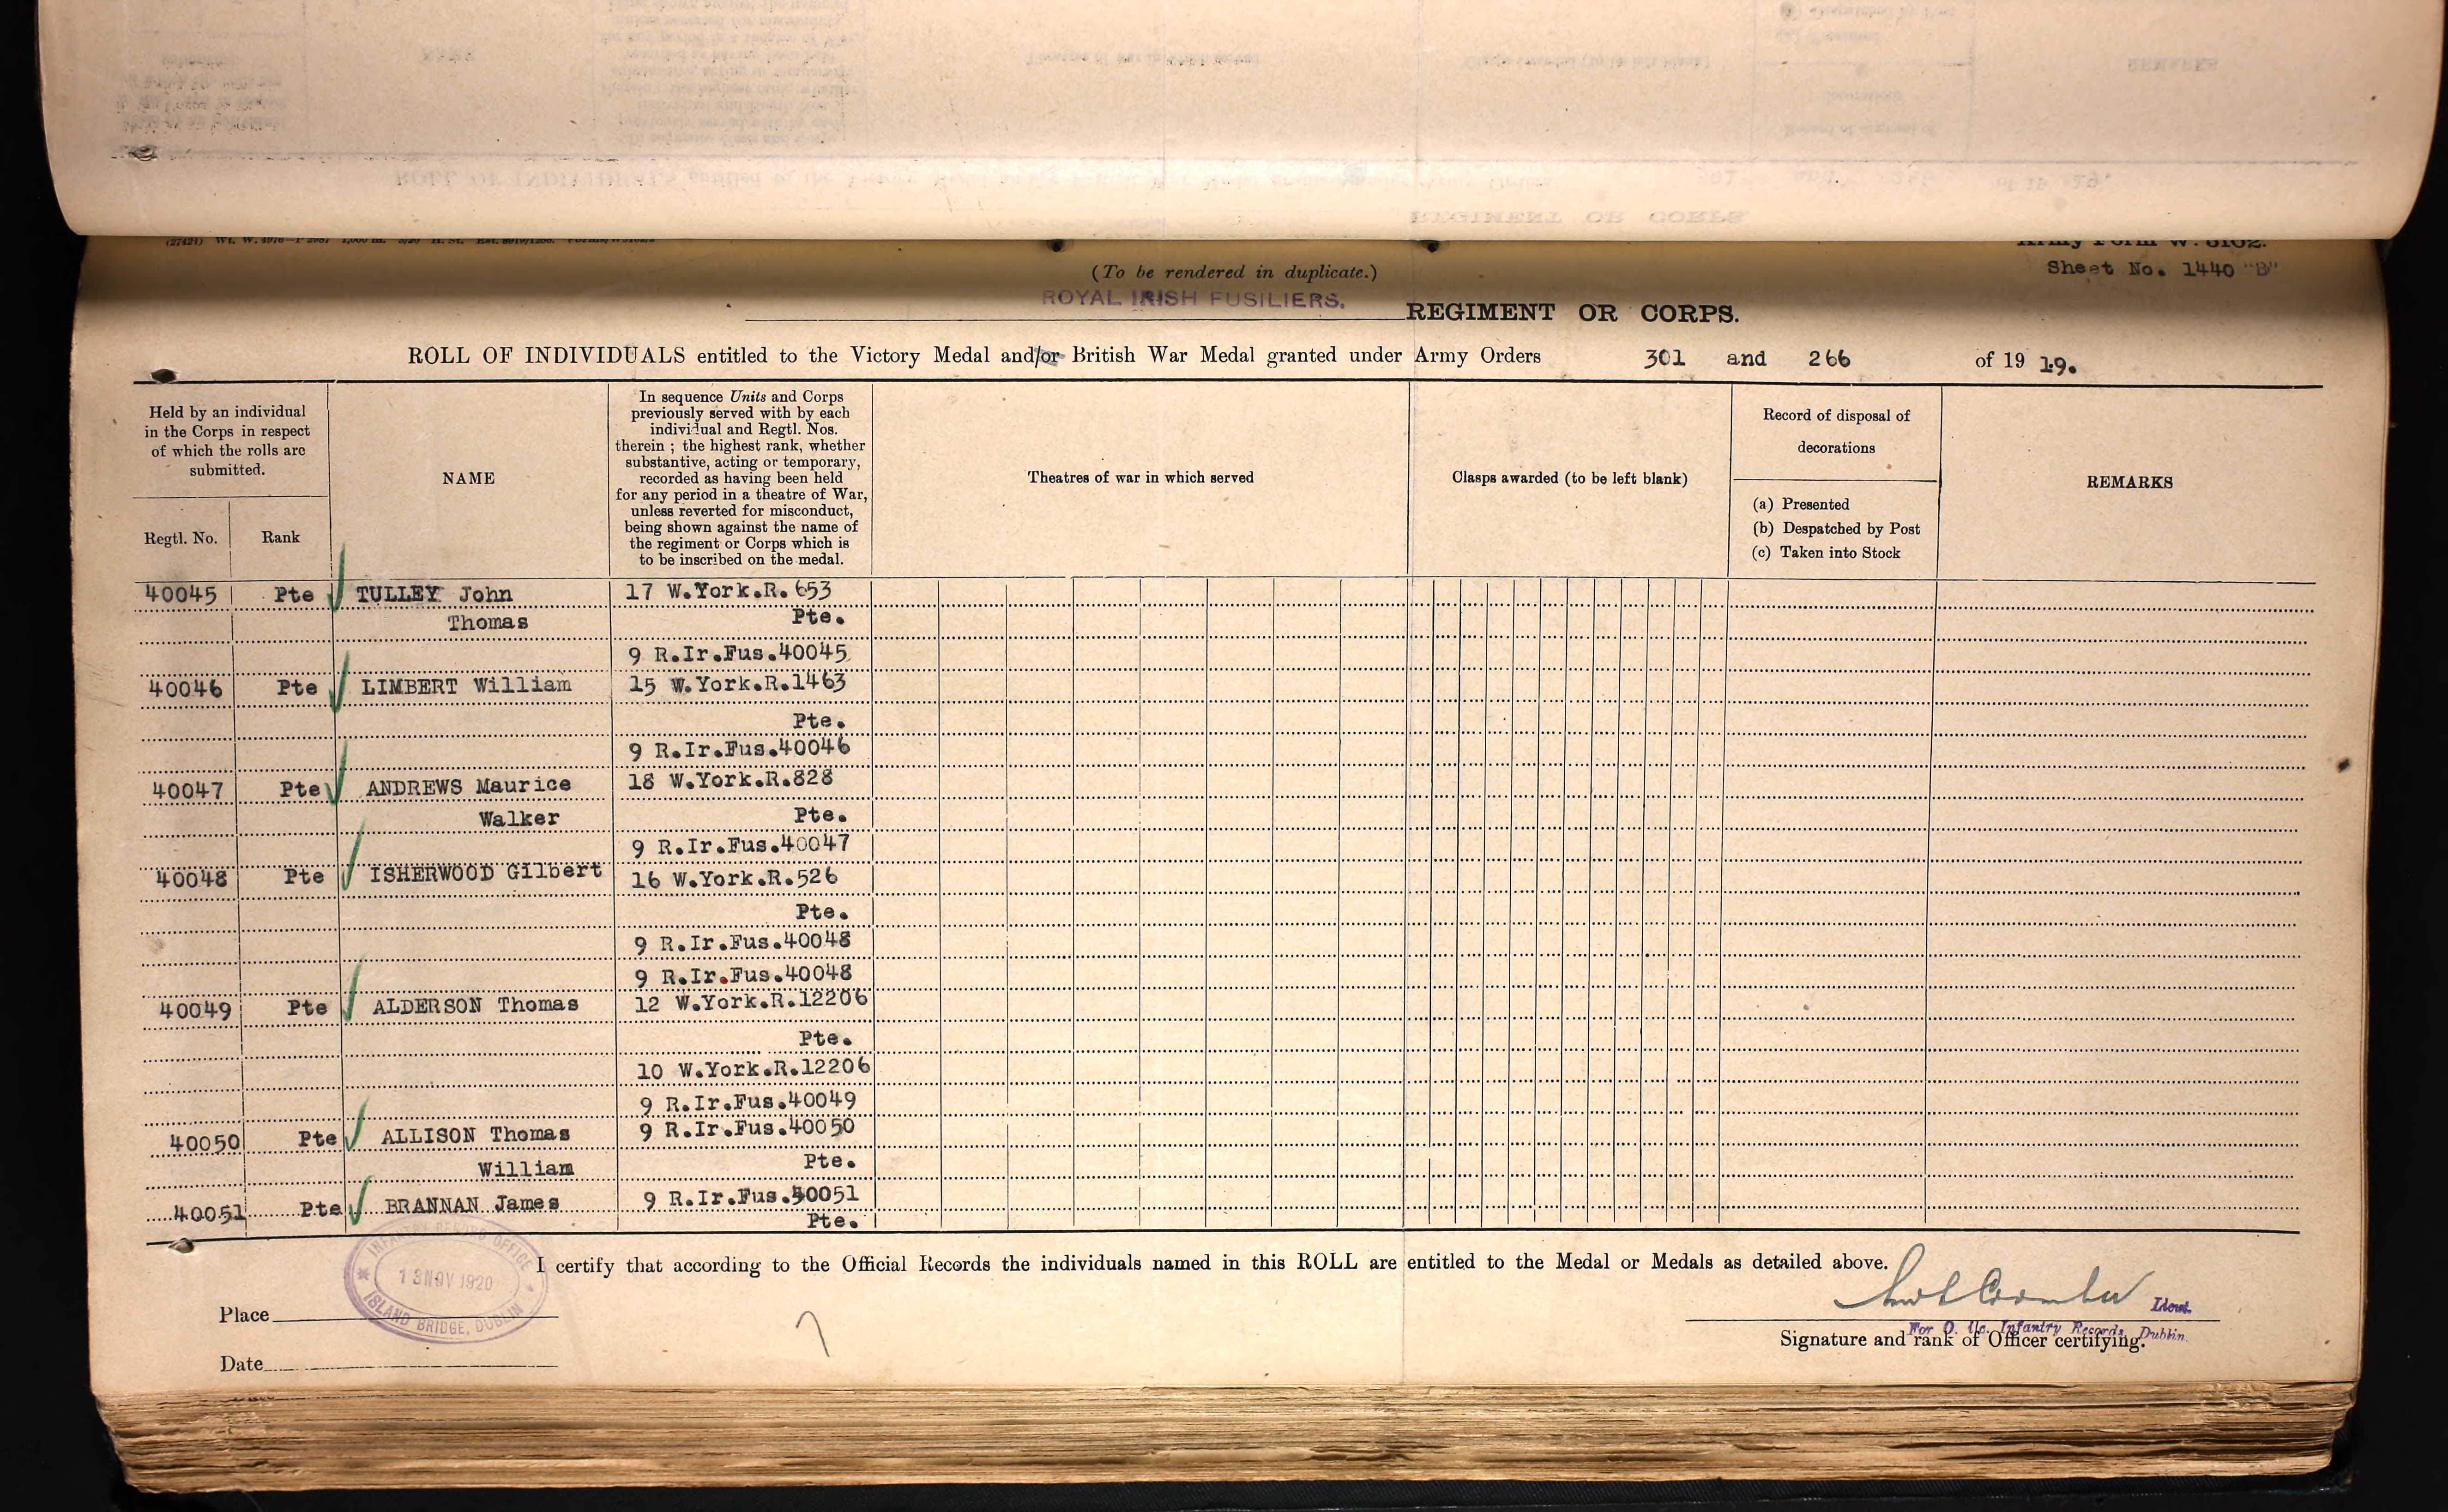 (To be rendered in duplicate.)
Sheet No. 1440 "B"
ROYAL IRISH FUSILIERS.
REGIMENT OR CORPS.
ROLL OF INDIVIDUALS entitled to the Victory Medal and/or British War Medal granted under Army Orders 301 and 266 of 19 19.
Held by an individual
in the Corps in respect
of which the rolls are
submitted.
Regtl. No.
Rank
NAME
In sequence Units and Corps
previously served with by each
individual and Regtl. Nos.
therein ; the highest rank, whether
substantive, acting or temporary,
recorded as having been held
for any period in a theatre of War,
unless reverted for misconduct,
being shown against the name of
the regiment or Corps which is
to be inscribed on the medal.
Theatres of war in which served
Clasps awarded (to be left blank)
Record of disposal of
decorations
(a) Presented
(b) Despatched by Post
(c) Taken into Stock
REMARKS
40045 Pte TULLEY John 17 W.York.R. 653
Thomas Pte.
9 R.Ir.Fus.40045
40046 Pte LIMBERT William 15 W.York.R.1463
Pte.
9 R.Ir.Fus.40046
40047 Pte ANDREWS Maurice 18 W.York.R.828
Walker Pte.
9 R.Ir.Fus.40047
40048 Pte ISHERWOOD Gilbert 16 W.York.R.526
Pte.
9 R.Ir.Fus.40048
9 R.Ir.Fus.40048
40049 Pte ALDERSON Thomas 12 W.York.R.12206
Pte.
10 W.York.R.12206
9 R.Ir.Fus.40049
40050 Pte ALLISON Thomas 9 R.Ir.Fus.40050
William Pte.
40051 Pte BRANNAN James 9 R.Ir.Fus.40051
Pte.
INFANTRY RECORD OFFICE
13 NOV 1920
ISLAND BRIDGE, DUBLIN
I certify that according to the Official Records the individuals named in this ROLL are entitled to the Medal or Medals as detailed above.
Place
Lieut.
For O. i/c. Infantry Records, Dublin.
Signature and rank of Officer certifying.
Date